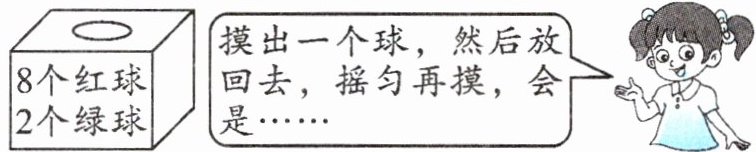 8个红球
2个绿球
摸出一个球，然后放
回去，摇匀再摸，会
是……